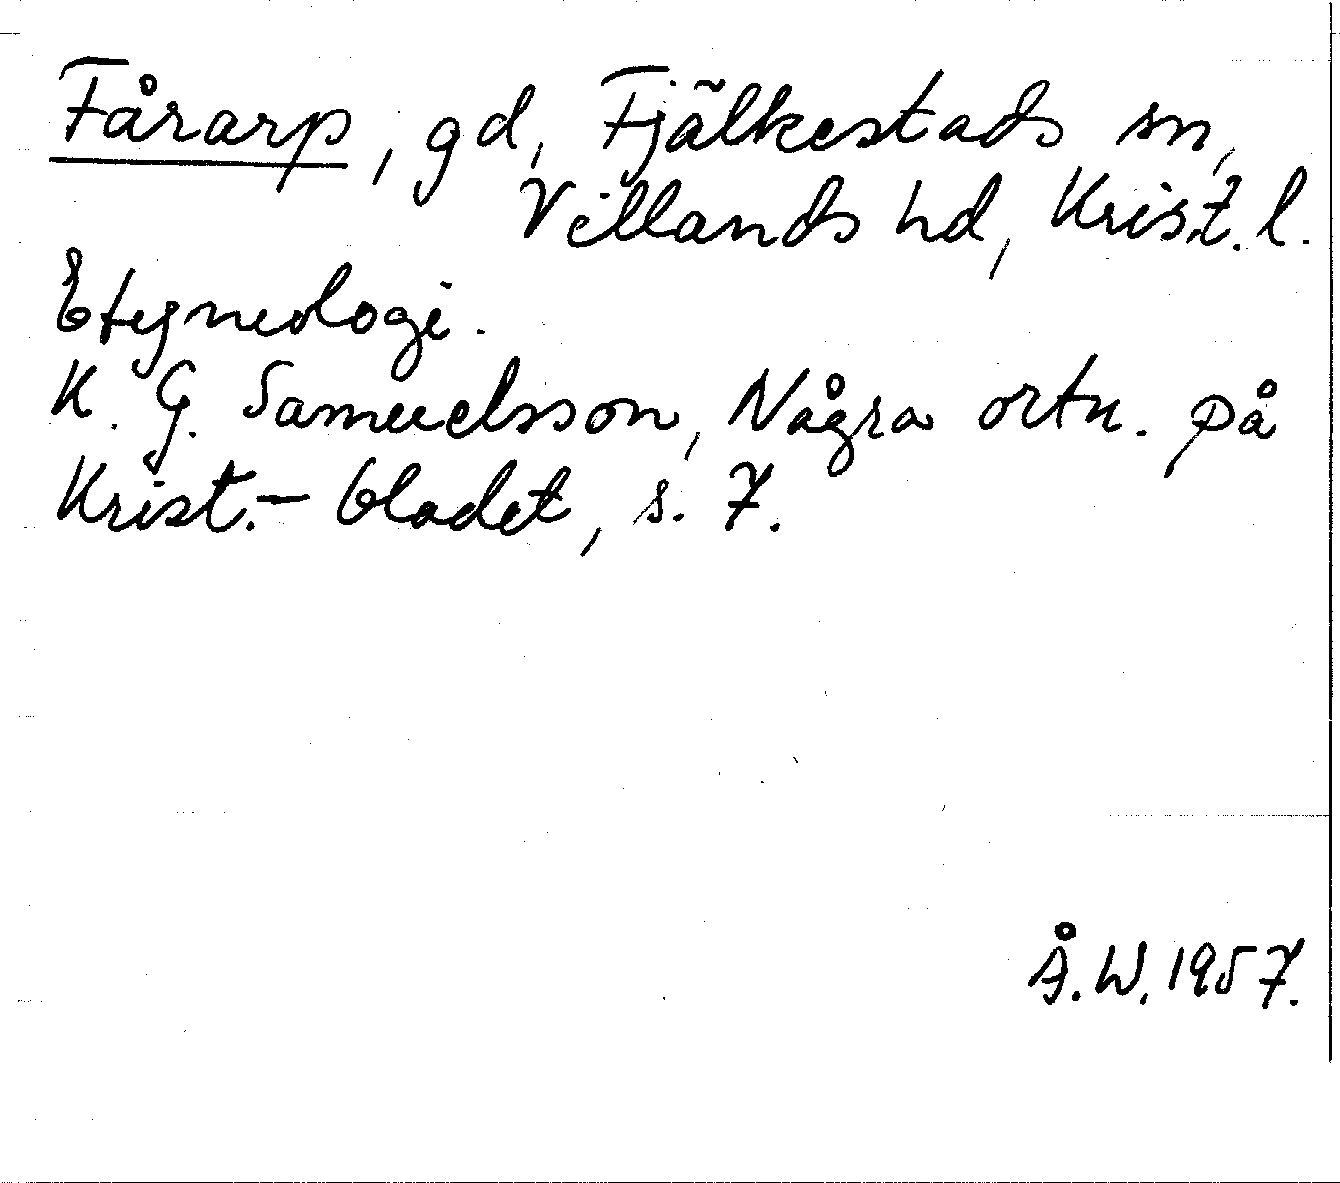 Fårarp, gd, Fjälkestads sn,
Villands hd, Krist. l.
Etymologi.
K. G. Samuelsson, Några ortn. på
Krist.- bladet, s. 7.
Å. W. 1957.